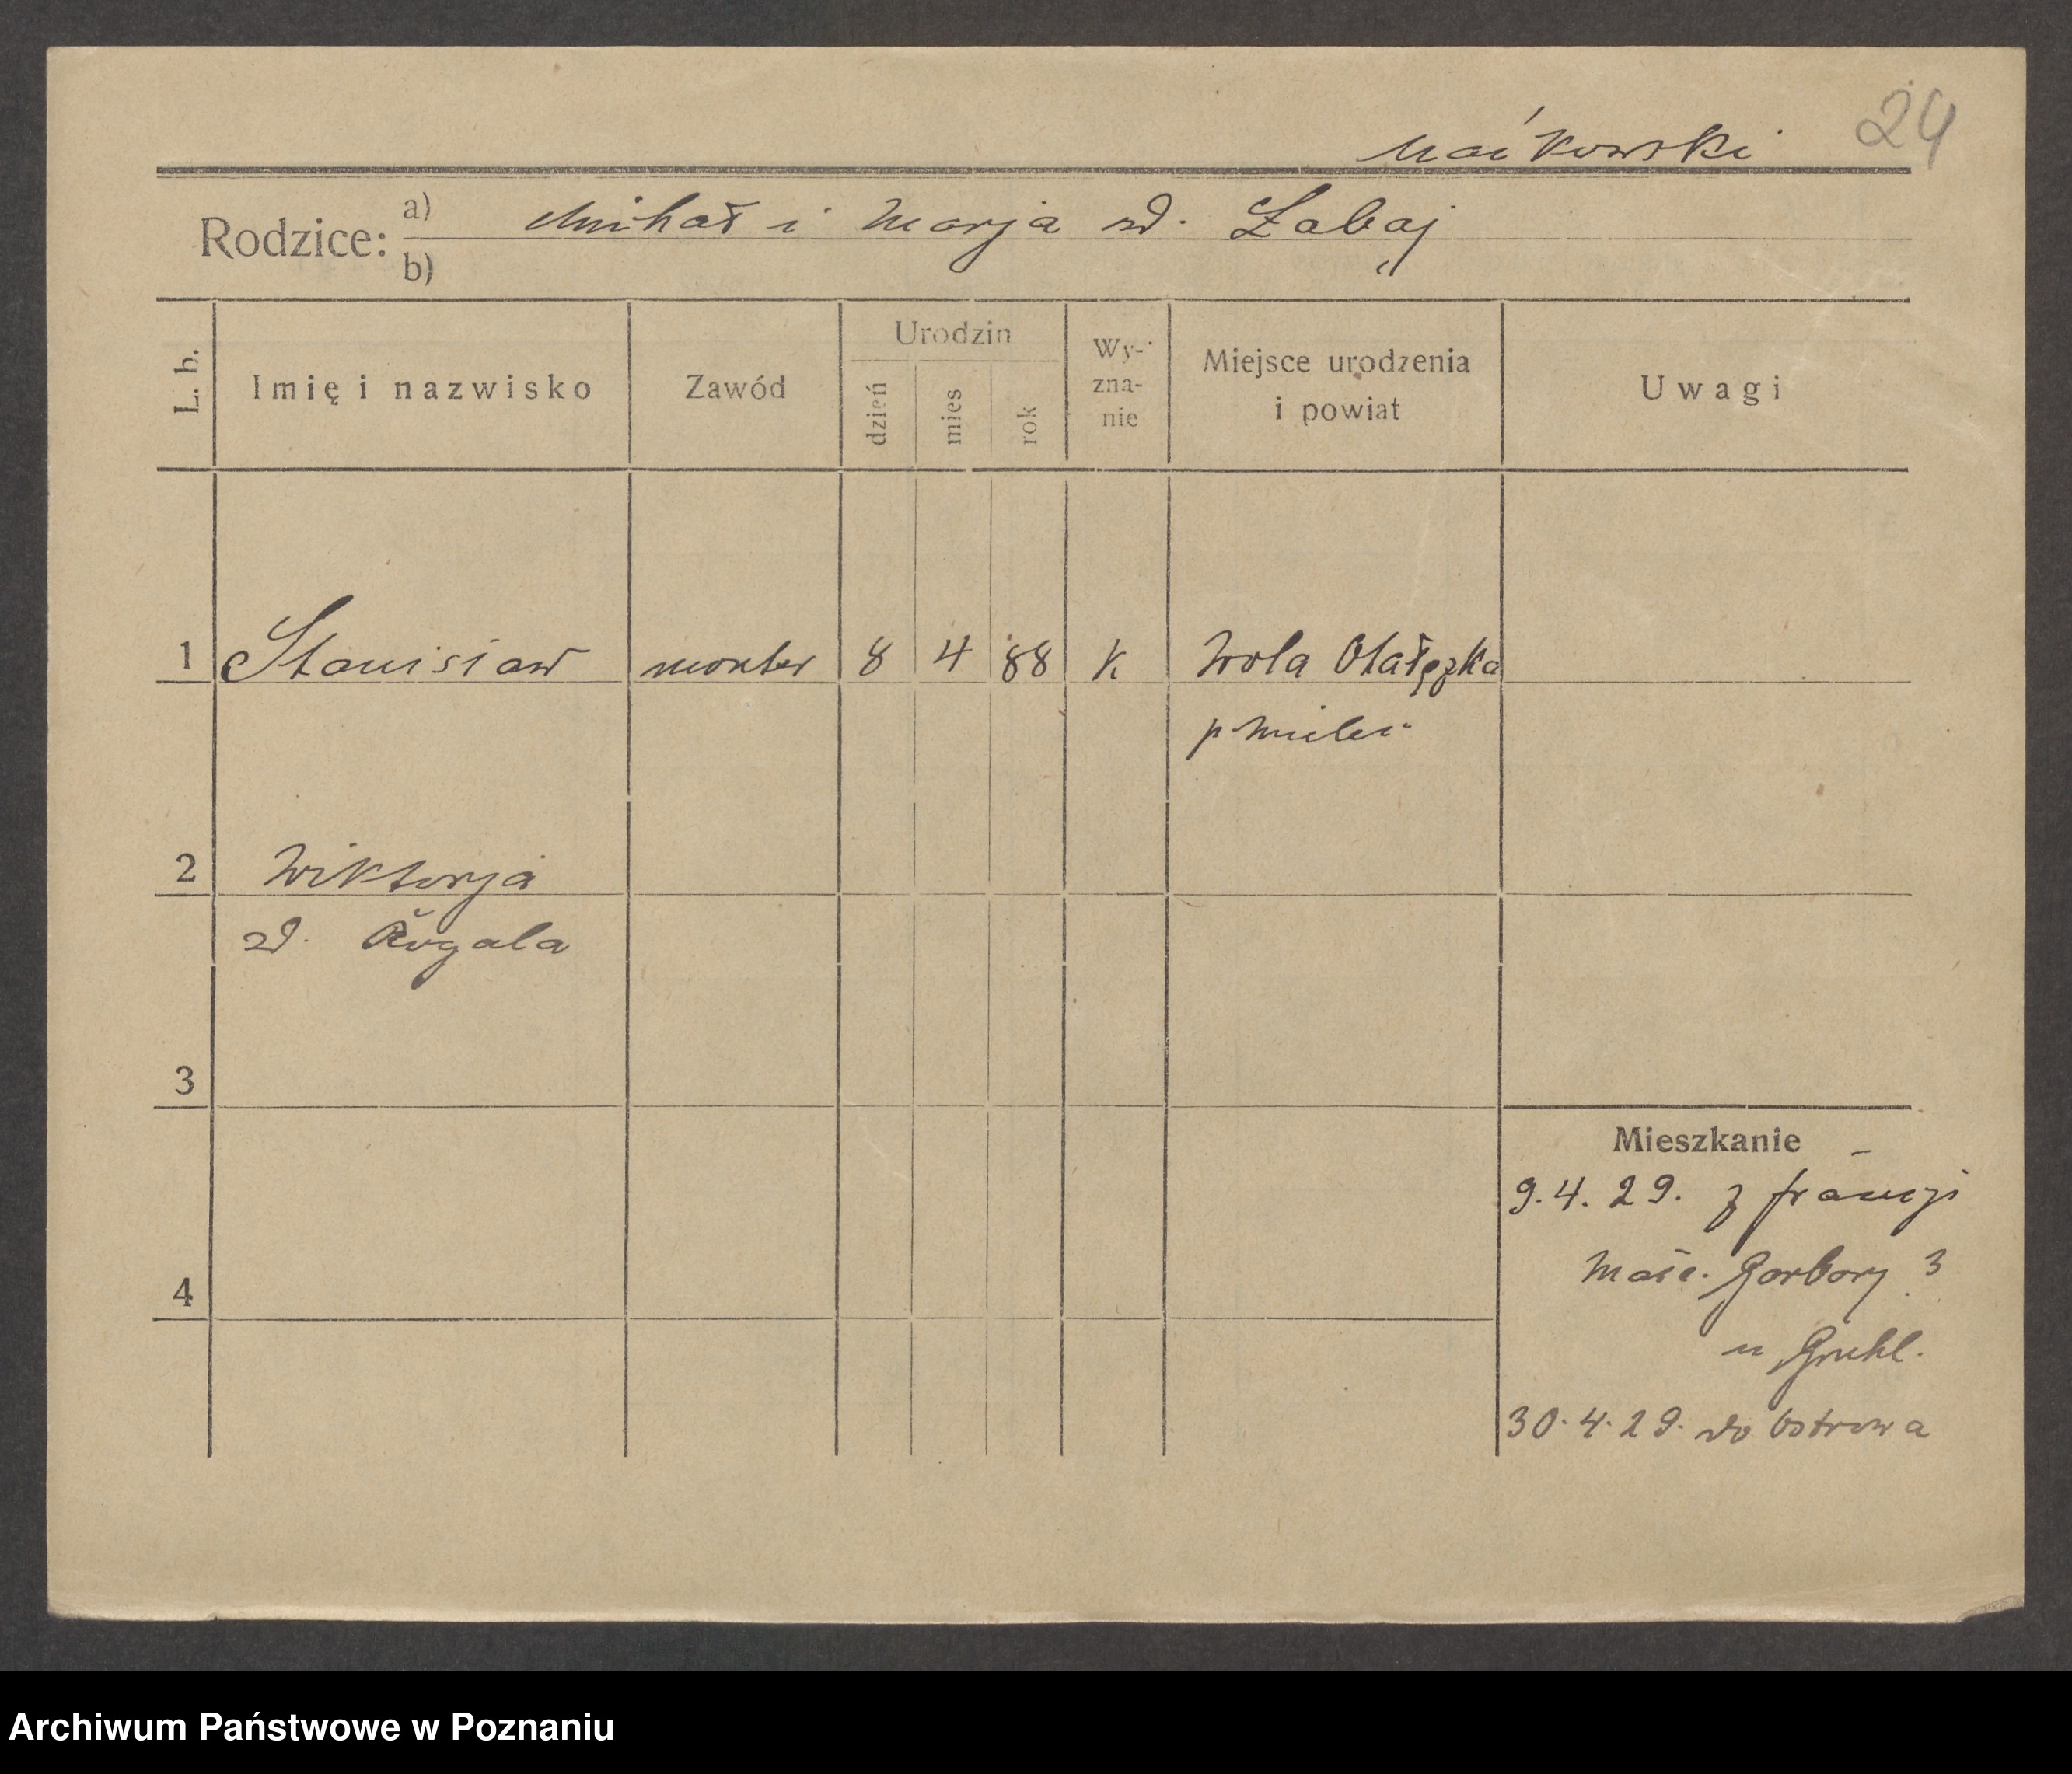 24
Maćkowski
Rodzice: a) Mihał i Marja zd. Łabaj
b)
L. b. Imię i nazwisko Zawód Urodzin dzień mies rok Wy-zna-nie Miejsce urodzenia i powiat Uwagi
1 Stanisław monter 8 4 88 K Wola Otałęzka
p. Mielec
2 Wiktorja
zd. Rogala
3
Mieszkanie
9.4.29. z francji
Garbary 3
4
u Gruhl.
30.4.29. do Ostrowa
Archiwum Państwowe w Poznaniu